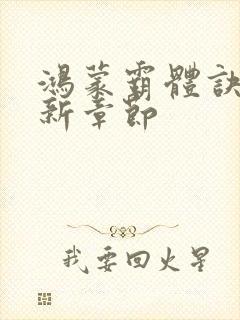 鴻蒙霸體訣
新章節
我要回火星